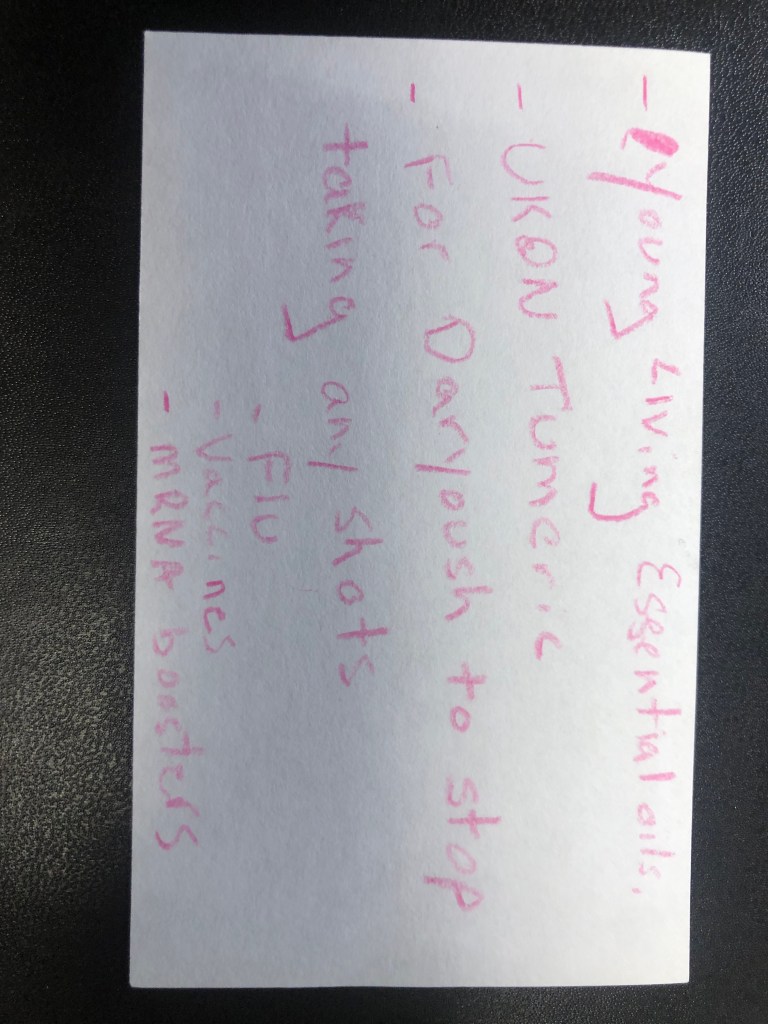 - Young Living Essential oils.
- UKON Tumeric
- For Daryoush to stop
taking any shots
- Flu
- Vaccines
- MRNA boosters